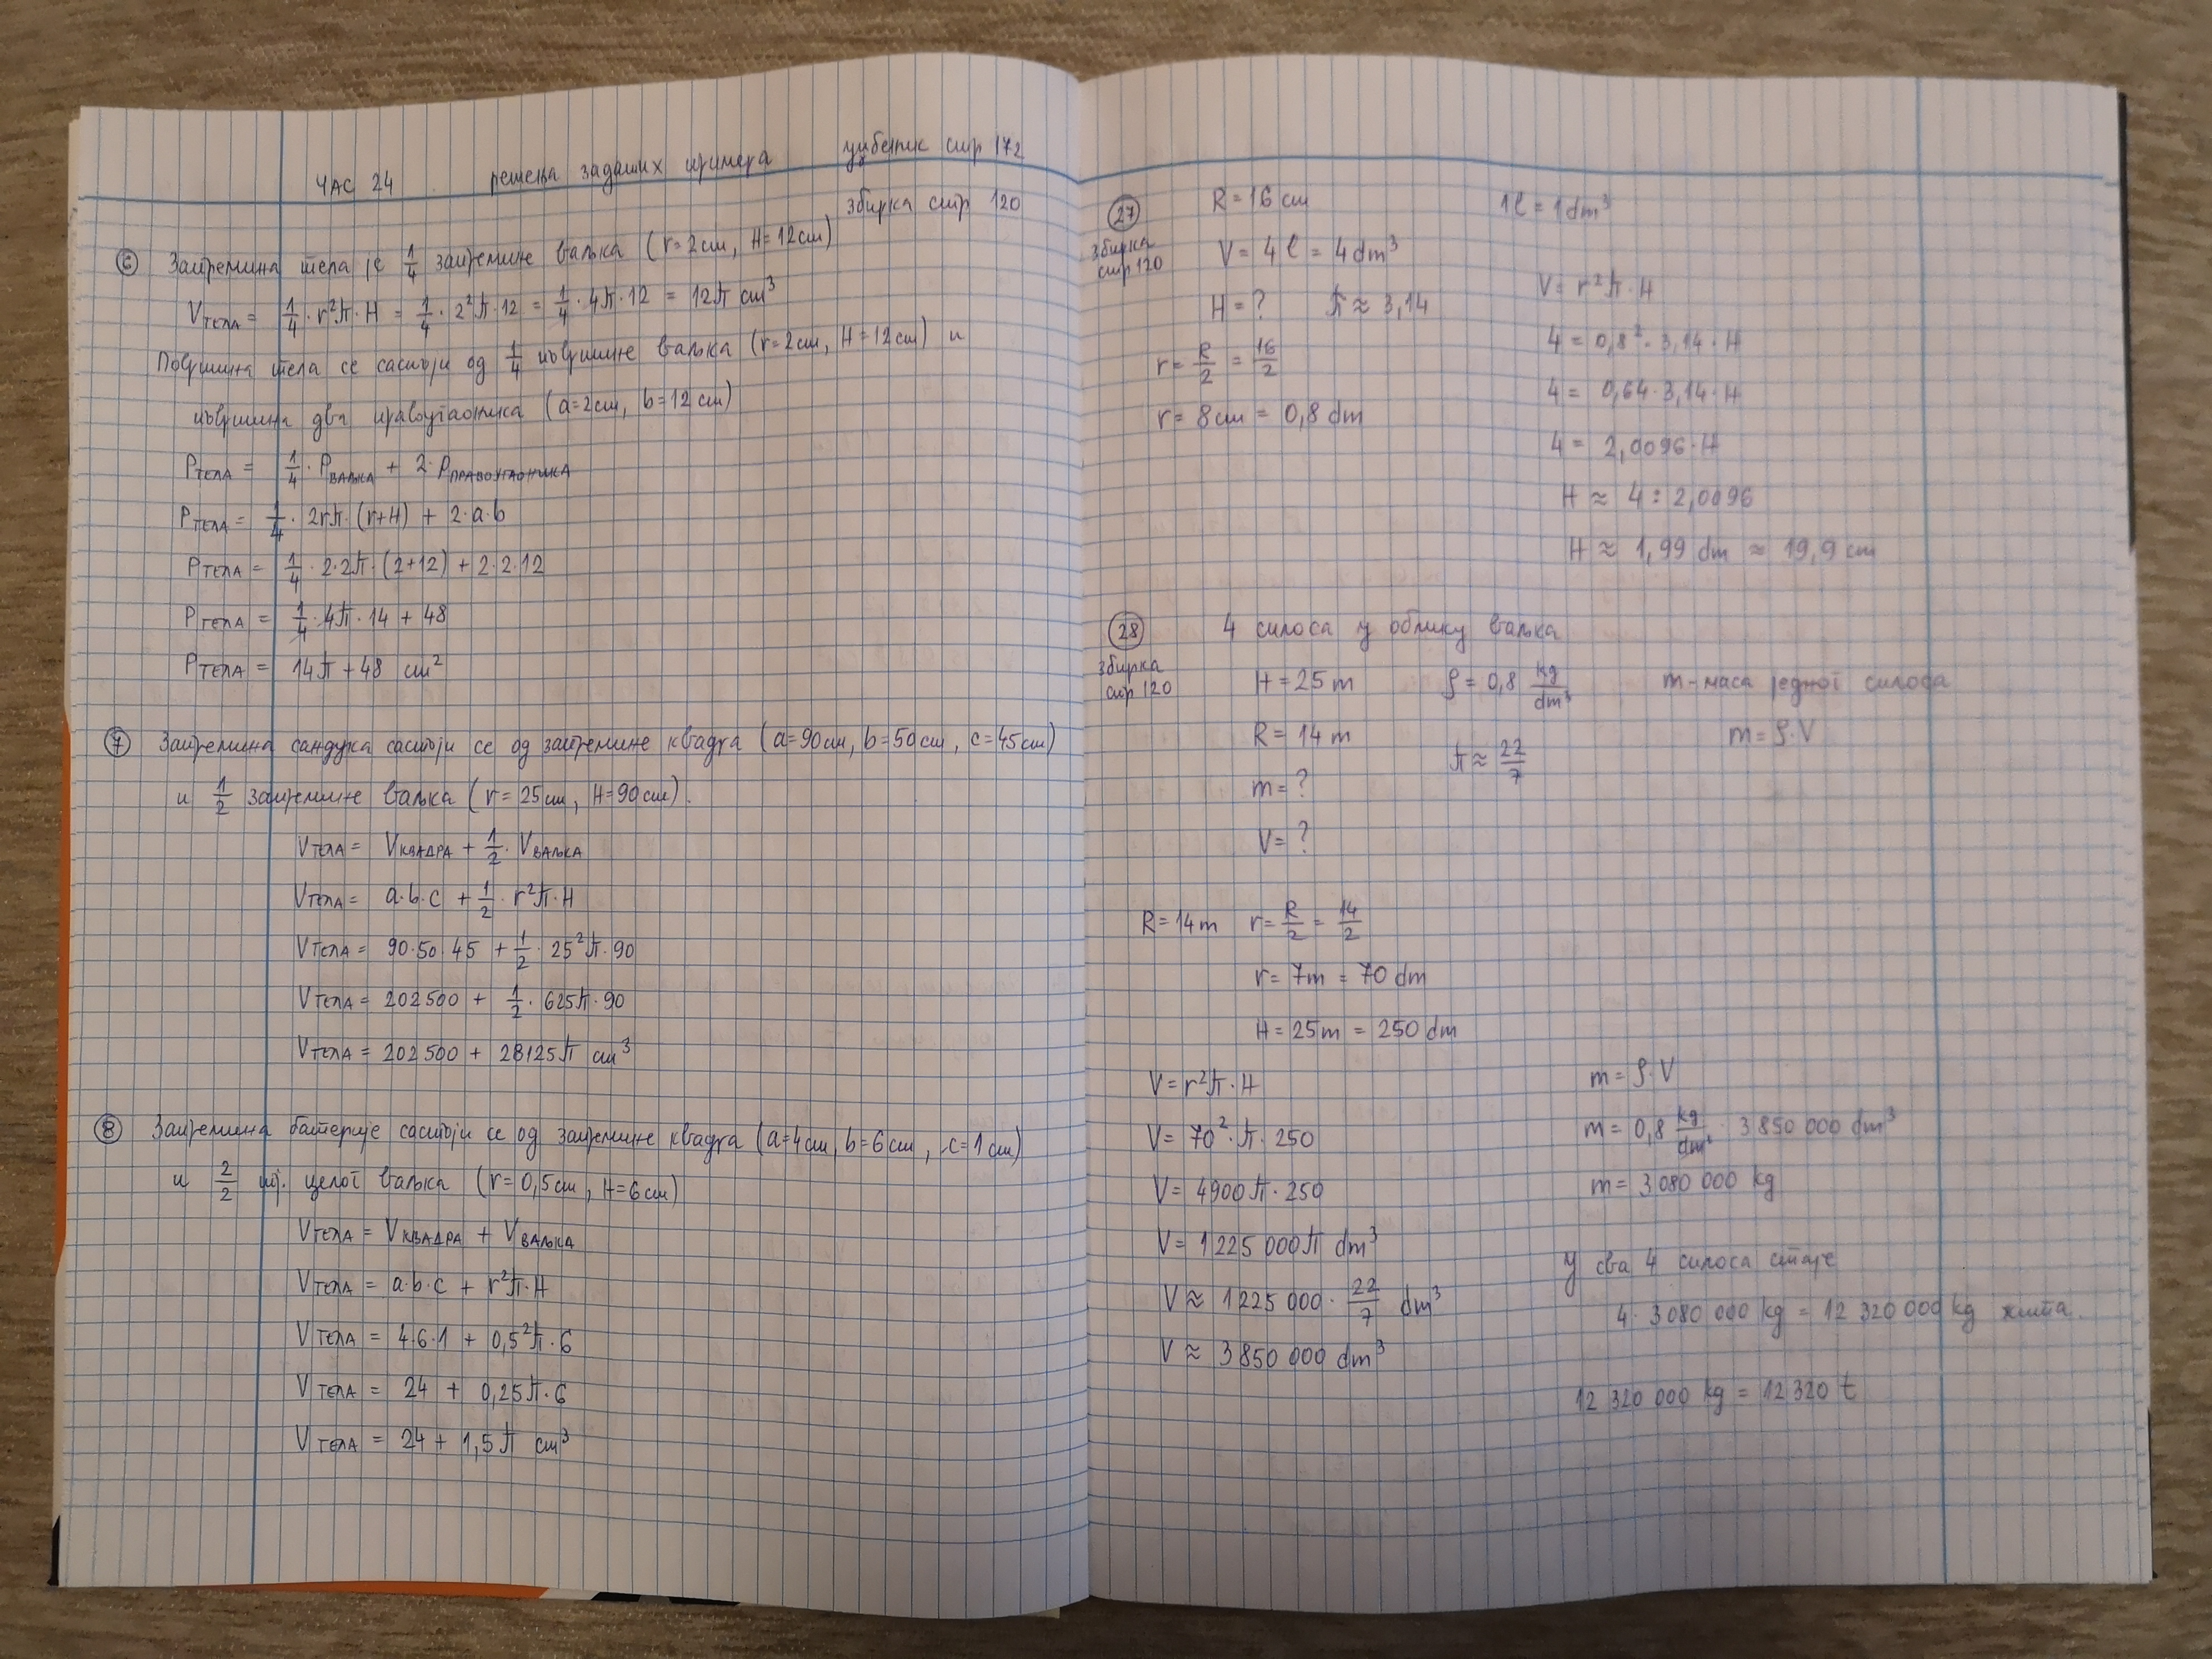 ЧАС 24 решења задатих примера уџбеник стр 172
збирка стр 120
6 Запремина тела је 1/4 запремине ваљка (r=2cm, H=12cm)
VТЕЛА = 1/4 · r²π·H = 1/4 · 2²π·12 = 1/4 · 4π·12 = 12π cm³
Површина тела се састоји од 1/4 површине ваљка (r=2cm, H=12cm) и
површина два правоугаоника (a=2cm, b=12cm)
PТЕЛА = 1/4 · PВАЉКА + 2·PПРАВОУГАОНИКА
PТЕЛА = 1/4 · 2rπ·(r+H) + 2·a·b
PТЕЛА = 1/4 · 2·2π·(2+12) + 2·2·12
PТЕЛА = 1/4 · 4π·14 + 48
PТЕЛА = 14π + 48 cm²
7 Запремина сандука састоји се од запремине квадра (a=90cm, b=50cm, c=45cm)
и 1/2 запремине ваљка (r=25cm, H=90cm).
VТЕЛА = VКВАДРА + 1/2 · VВАЉКА
VТЕЛА = a·b·c + 1/2 · r²π·H
VТЕЛА = 90·50·45 + 1/2 · 25²π·90
VТЕЛА = 202500 + 1/2 · 625π·90
VТЕЛА = 202500 + 28125π cm³
8 Запремина батерије састоји се од запремине квадра (a=4cm, b=6cm, c=1cm)
и 2/2 тј. целог ваљка (r=0,5cm, H=6cm)
VТЕЛА = VКВАДРА + VВАЉКА
VТЕЛА = a·b·c + r²π·H
VТЕЛА = 4·6·1 + 0,5²π·6
VТЕЛА = 24 + 0,25π·6
VТЕЛА = 24 + 1,5π cm³
27 R = 16 cm 1l = 1dm³
збирка
стр 120
V = 4l = 4dm³
H = ? π ≈ 3,14
r = R/2 = 16/2
r = 8cm = 0,8 dm
V = r²π·H
4 = 0,8²·3,14·H
4 = 0,64·3,14·H
4 = 2,0096·H
H ≈ 4 : 2,0096
H ≈ 1,99 dm ≈ 19,9 cm
28 4 силоса у облику ваљка
збирка
стр 120
H = 25 m ρ = 0,8 kg/dm³ m - маса једног силоса
R = 14 m π ≈ 22/7 m = ρ·V
m = ?
V = ?
R = 14 m r = R/2 = 14/2
r = 7m = 70 dm
H = 25m = 250 dm
V = r²π·H
V = 70²·π·250
V = 4900π·250
V = 1 225 000π dm³
V ≈ 1 225 000 · 22/7 dm³
V ≈ 3 850 000 dm³
m = ρ·V
m = 0,8 kg/dm³ · 3 850 000 dm³
m = 3 080 000 kg
У сва 4 силоса стаје
4 · 3 080 000 kg = 12 320 000 kg жита.
12 320 000 kg = 12 320 t